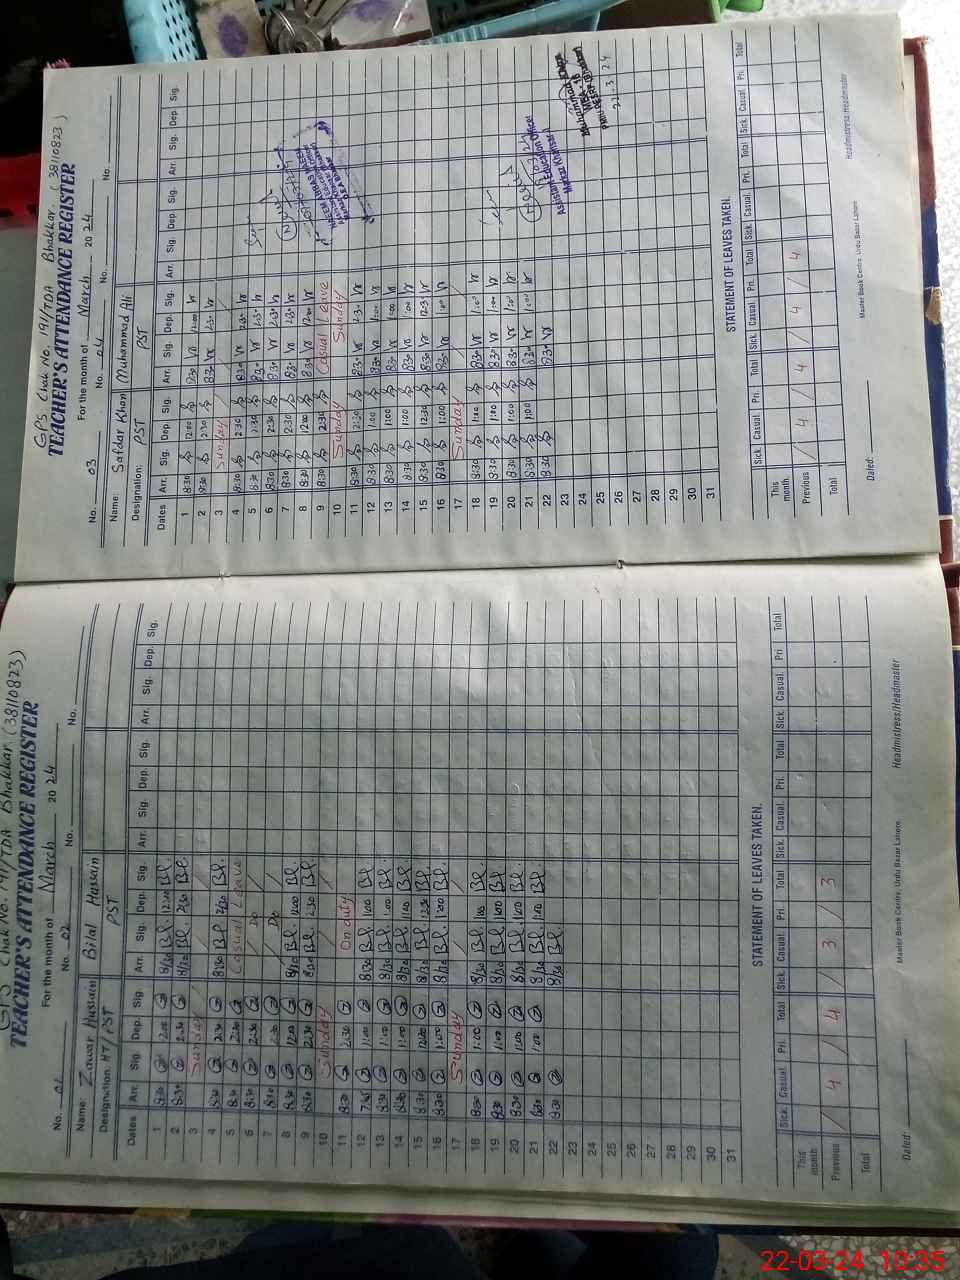 GPS Chak No. 191/TDA Bhakkar. (38110823)
TEACHER'S ATTENDANCE REGISTER
For the month of March 2024
No. 01 No. 02 No. No.
Name: Zawar Hussain Bilal Hussain
Designation: HT/PST PST
Dates Arr. Sig. Dep. Sig. Arr. Sig. Dep. Sig. Arr. Sig. Dep. Sig. Arr. Sig. Dep. Sig.
1 8:30 12:00 8/30 Bl. 12:00 Bl.
2 8:30 2:30 8/30 Bl. 2:30 Bl.
3 Sunday
4 8:30 2:30 8:30 Bl. 2:30 Bl.
5 8:30 2:30 Casual Leave
6 8:30 2:30 Do
7 8:30 2:30 Do
8 8:30 12:00 8/30 Bl. 12:00 Bl.
9 8:30 2:30 8:30 Bl. 2:30 Bl.
10 Sunday
11 8:30 2:30 On duty
12 1:00 8:30 Bl. 1:00 Bl.
13 8:30 1:00 8/30 Bl. 1:00 Bl.
14 8:30 1:00 8/30 Bl. 1:00 Bl.
15 8:30 12:30 8/30 Bl. 12:30 Bl.
16 8:30 1:00 8/30 Bl. 1:00 Bl.
17 Sunday
18 8:30 1:00 8/30 Bl. 1:00 Bl.
19 8:30 1:00 8/30 Bl. 1:00 Bl.
20 8:30 1:00 8/30 Bl. 1:00 Bl.
21 8:30 1:00 8/30 Bl. 1:00 Bl.
22 8:30 8/30 Bl.
23
24
25
26
27
28
29
30
31
STATEMENT OF LEAVES TAKEN.
Sick. Casual Pri. Total Sick. Casual. Pri. Total Sick. Casual. Pri. Total Sick. Casual. Pri Total
This month
Previous / 4 / 4 / 3 / 3
Total
Dated: Headmistress/Headmaster
Master Book Centre, Urdu Bazar Lahore.
GPS Chak No. 191/TDA Bhakkar. (38110823)
TEACHER'S ATTENDANCE REGISTER
For the month of March 2024
No. 03 No. 04 No. No.
Name: Safdar Khan Muhammad Ali
Designation: PST PST
Dates Arr. Sig. Dep. Sig. Arr. Sig. Dep. Sig. Arr. Sig. Dep. Sig. Arr. Sig. Dep. Sig.
1 8:30 12:00 8:30 12:00
2 8:30 2:30 8:30 2:30
3 Sunday
4 8:30 2:30 8:30 2:30
5 8:30 2:30 8:30 2:30
6 8:30 2:30 8:30 2:30
7 8:30 2:30 8:30 2:30
8 8:30 12:00 8:30 12:00
9 8:30 2:30 Casual Leave
10 Sunday Sunday
11 8:30 2:30 8:30 2:30
12 8:30 1:00 8:30 1:00
13 8:30 1:00 8:30 1:00
14 8:30 1:00 8:30 1:00
15 8:30 12:30 8:30 12:30
16 8:30 1:00 8:30 1:00
17 Sunday
18 8:30 1:00 8:30 1:00
19 8:30 1:00 8:30 1:00
20 8:30 1:00 8:30 1:00
21 8:30 1:00 8:30 1:00
22 8:30 8:30
23
24
25
26
27
28
29
30
31
Assistant Education Officer
Markaz Khansar
22-3-24
STATEMENT OF LEAVES TAKEN.
Sick. Casual. Pri. Total Sick. Casual. Pri. Total Sick. Casual. Pri. Total Sick Casual Pri. Total
This month
Previous / 4 / 4 / 4 / 4
Total
Dated: Headmistress/Headmaster
Master Book Centre, Urdu Bazar Lahore
22-03-24 10:35